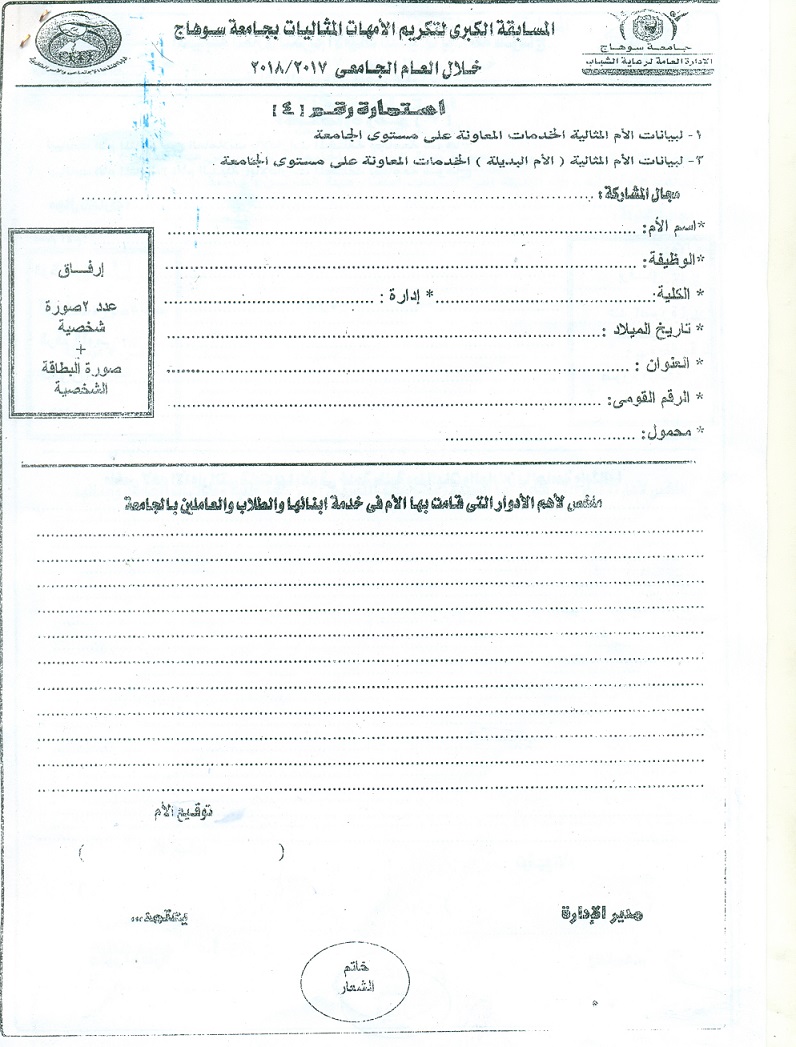 المسابقة الكبرى لتكريم الأمهات المثاليات بجامعة سوهاج
خلال العام الجامعى ٢٠١٨/٢٠١٧
جامعة سوهاج
الادارة العامة لرعاية الشباب
استمارة رقم (٤)
١- لبيانات الأم المثالية الخدمات المعاونة على مستوى الجامعة
٢- لبيانات الأم المثالية ( الأم البديلة ) الخدمات المعاونة على مستوى الجامعة .
مجال المشاركة:
*اسم الأم:
*الوظيفة:
* الكلية: * إدارة :
* تاريخ الميلاد :
* العنوان :
* الرقم القومى:
* محمول:
إرفـاق
عدد ٢صورة
شخصية
+
صورة البطاقة
الشخصية
ملخص لأهم الأدوار التى قامت بها الأم فى خدمة ابنائها والطلاب والعاملين بالجامعة
توقيع الأم
( )
مدير الإدارة يعتمد،،،
خاتم
الشعار